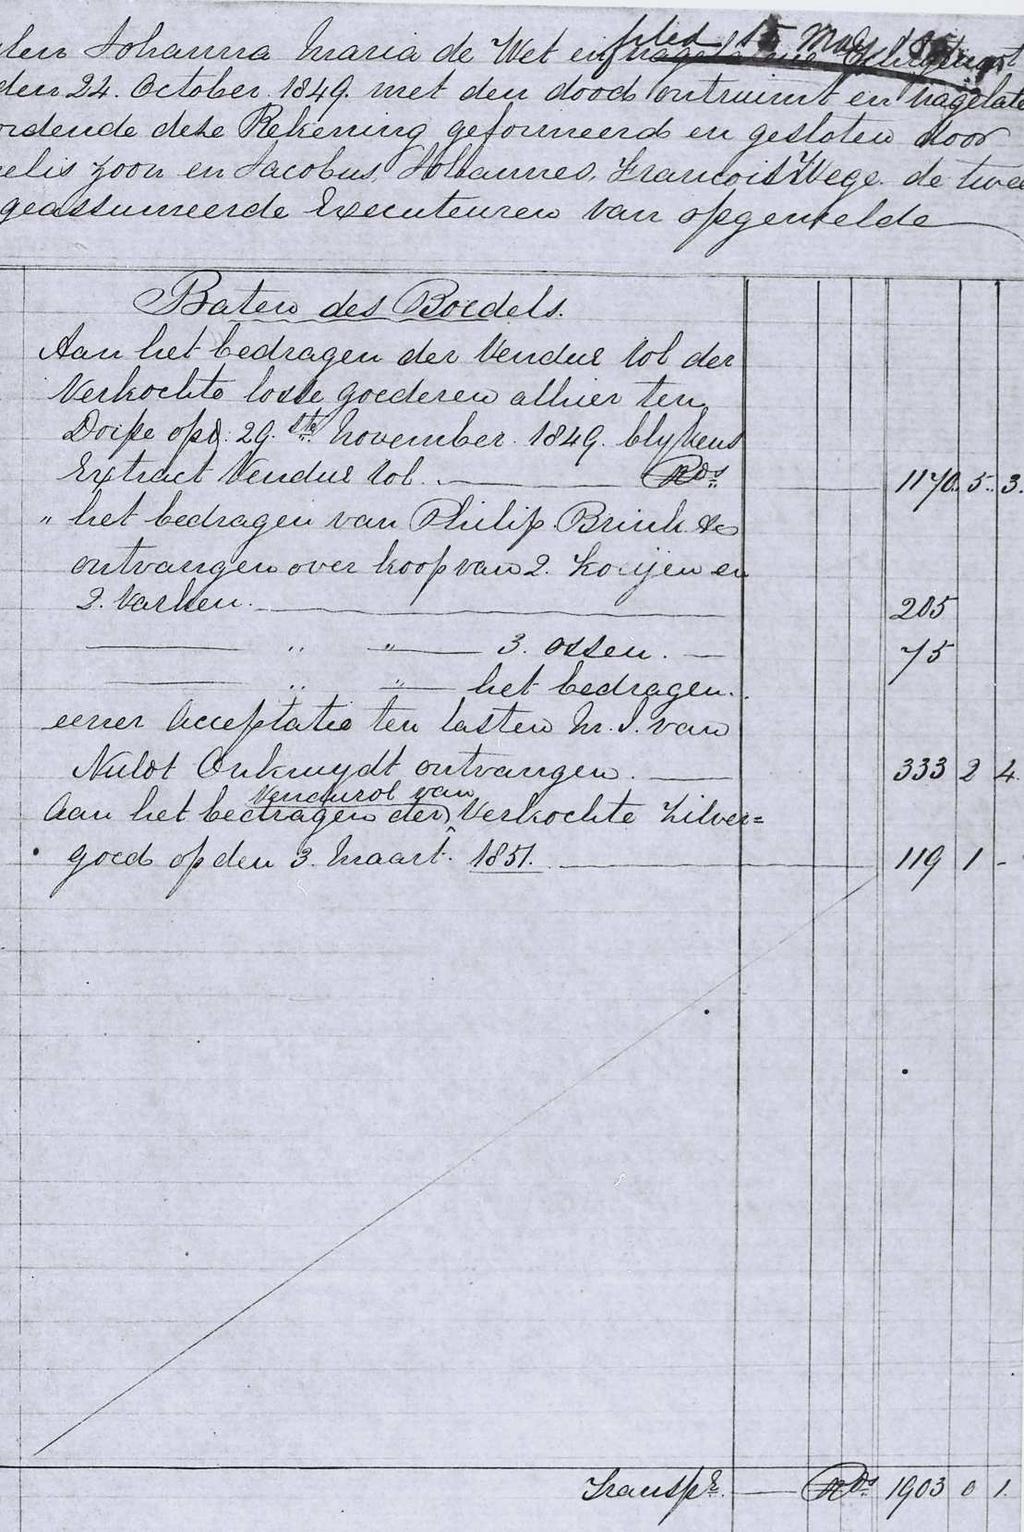 filed 15 May 185
len Johanna Maria de Wet en
den 24. October. 1849. met den dood ontruimt en nagelate
ordende deze Rekening geformeerd en gesloten door
elis zoon en Jacobus, Johannes, Francois Wege. de twee
geassumeerde Executeuren van opgemelde
Baten des Boedels.
Aan het bedragen der Vendue rol der
Verkochte losse goederen alhier ten
Dorpe opd: 29.ste November. 1849. blykens
Extract Vendue rol. Rds 1170. 5. 3.
" het bedragen van Philip. Brink &
ontvangen over koop van 2. Koeijen en
2. Varken. 205
" " 3. ossen. 75
" " het bedragen.
eener Acceptatie ten lasten M. J. van
Nuldt Onkruydt ontvangen. 333 2 4.
Vendurol van
Aan het bedragen der Verkochte Zilver=
goed op den 3. Maart. 1851. 119 1 -
Transp.t Rds 1903 0 1.